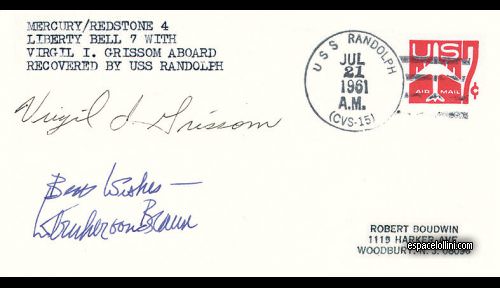 MERCURY/REDSTONE 4
LIBERTY BELL 7 WITH
VIRGIL I. GRISSOM ABOARD
RECOVERED BY USS RANDOLPH
USS RANDOLPH
JUL
21
1961
A.M.
(CVS-15)
US
7¢
AIR MAIL
Virgil I. Grissom
Best Wishes —
Wernher von Braun
ROBERT BOUDWIN
1119 HARKER AVE.
espacelollini.com
WOODBURY, N. J.